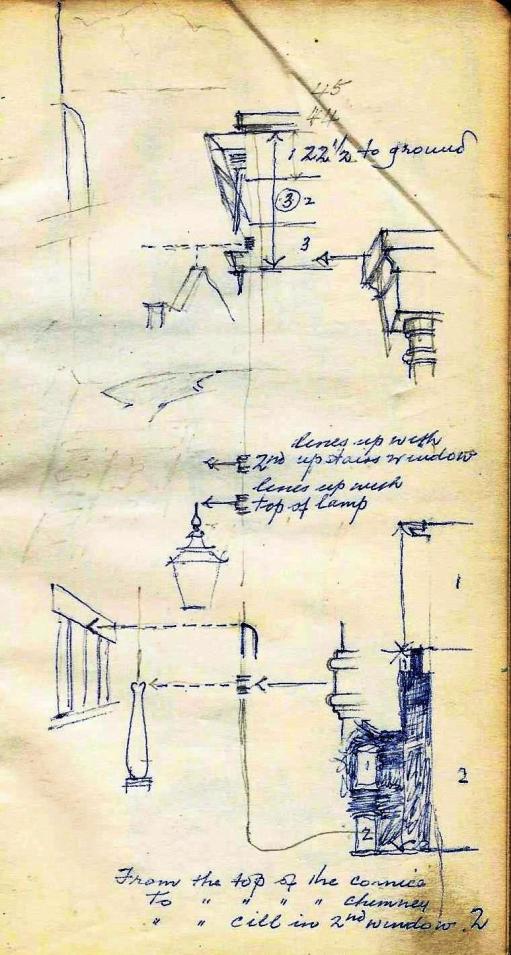 45
44
1 22 1/2 to ground
3 2
3
lines up with
2nd upstairs window
lines up with
top of lamp
1
1
2
2
From the top of the cornice
To " " " " chimney
" " cill in 2nd window. 2